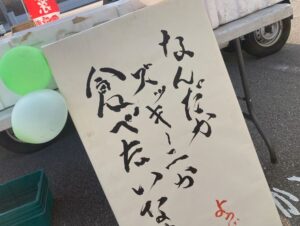 なんだか
ズッキーニが
食べたいな